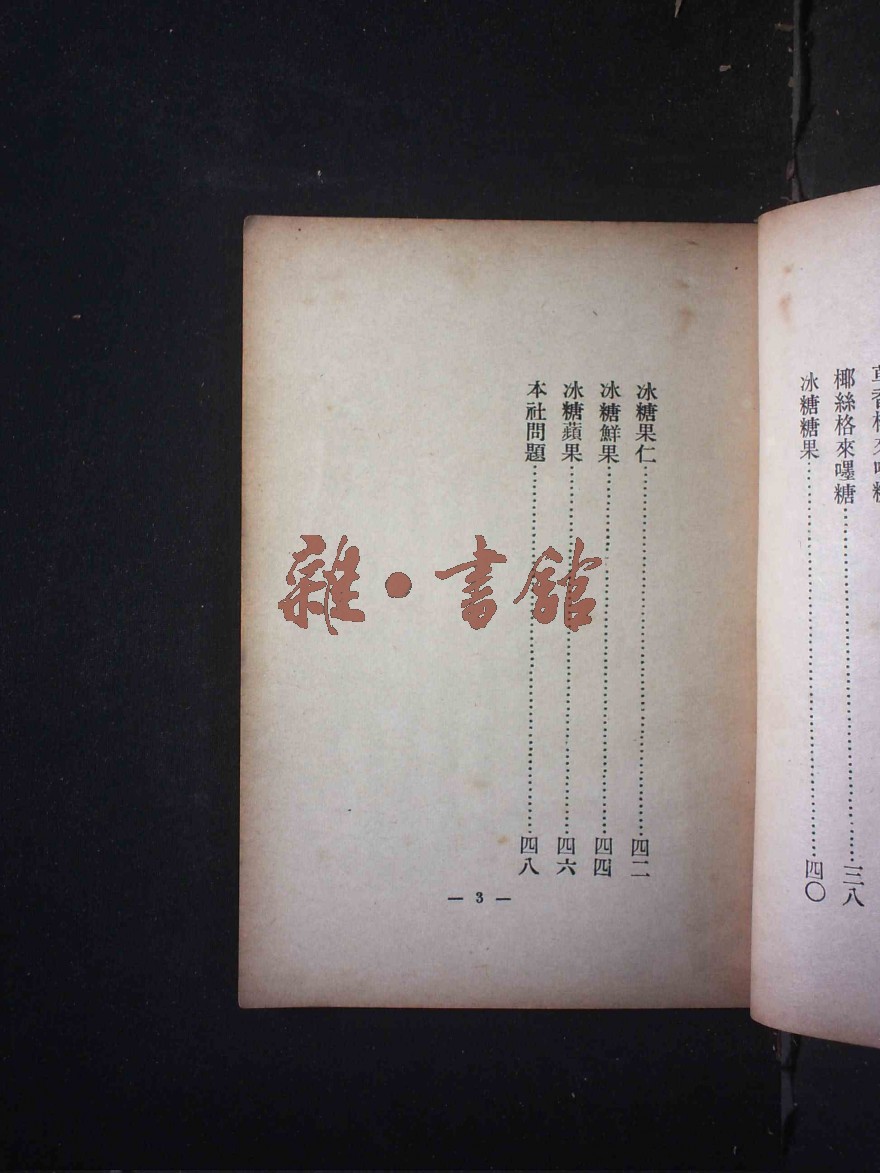 椰絲格來嘿糖……三八
冰糖糖果……四〇
冰糖果仁……四二
冰糖鮮果……四四
冰糖蘋果……四六
本社問題……四八
— 3 —
雜·書館